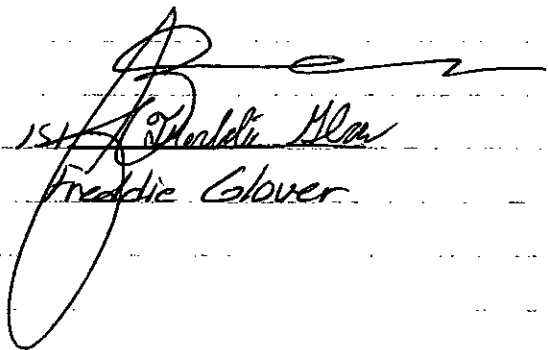 /s/ Freddie Glover
Freddie Glover